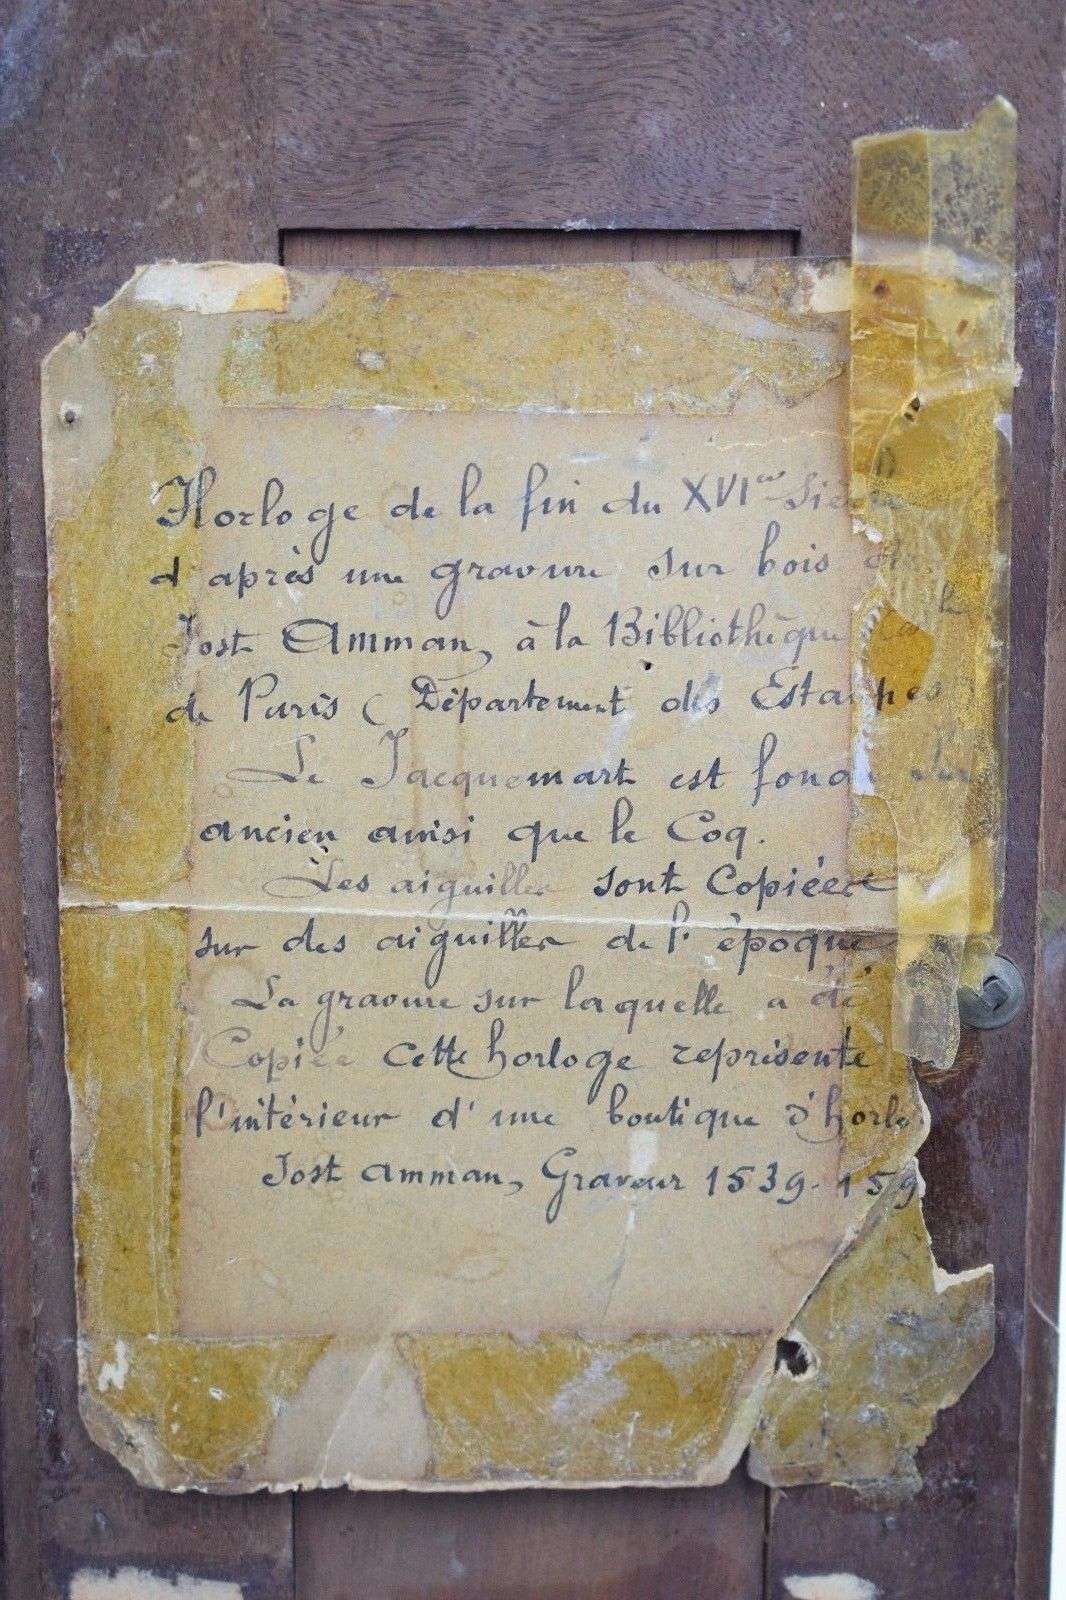 Horloge de la fin du XVIme Siè
d'après une gravure sur bois de
Jost Amman, à la Bibliothèque
de Paris (Département des Estampes
Le Jacquemart est fondu sur
ancien ainsi que le Coq.
Les aiguilles sont Copiées
sur des aiguilles de l'époque
La gravure sur laquelle a été
Copiée cette horloge représente
l'intérieur d'une boutique d'horlo
Jost Amman, Graveur 1539-159